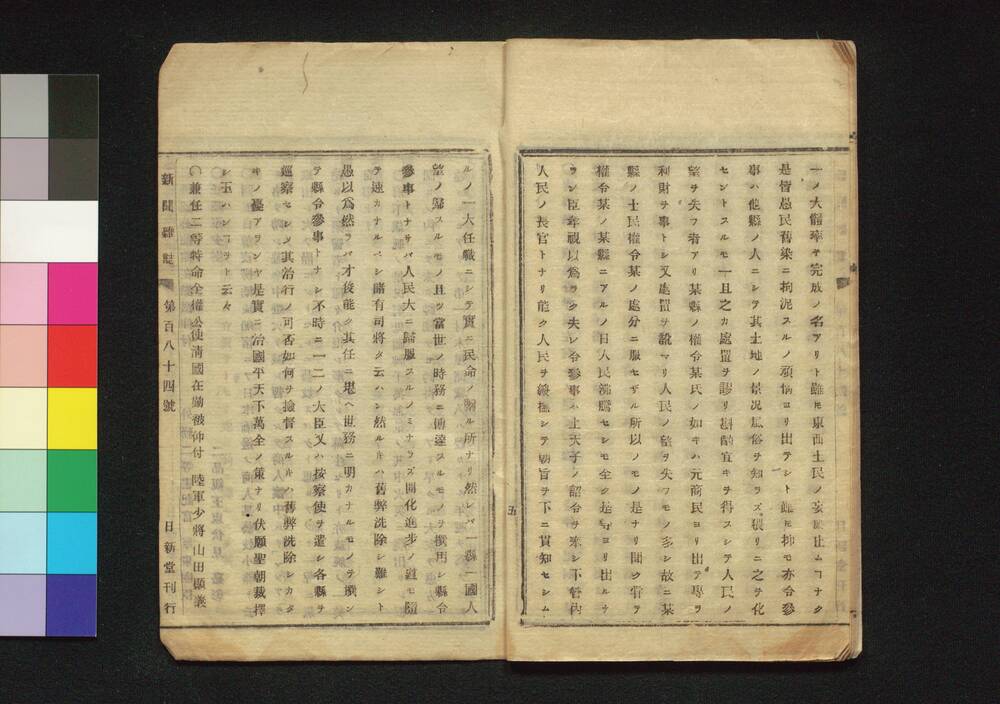 一ノ大龍率ヤ完成ノ名アリト雖𪜈東西土民ノ妄動止ムヿナク
是皆愚民舊染ニ拘泥スルノ頑愞ヨリ出テシト雖𪜈抑モ亦令參
事ハ他縣ノ人ニシテ其土地ノ景况風俗ヲ知ラズ猥リニ之ヲ化
セントスルモ一旦之カ處置ヲ謬リ斟酌宜キヲ得スシテ人民ノ
望ヲ失フ者アリ某縣ノ權令某氏ノ如キハ元商民ヨリ出テ專ラ
利財ヲ事トシ又處置ヲ誤マリ人民ノ望ヲ失フモノ多シ故ニ某
縣ノ士民權令某ノ處分ニ服セザル所以ノモノ是ナリ聞ク曾テ
權令某ノ某縣ニアルノ日人民沸騰セシモ全ク是等ヨリ出ルナ
ラン臣年視以爲ラク夫レ令參事ハ上天子ノ詔令ヲ奉シ下管内
人民ノ長官トナリ能ク人民ヲ綏撫シテ朝旨ヲ下ニ貫知セシム
五
ルノ一大任職ニシテ實ニ民命ノ關ル所ナリ然レバ一縣一國人
望ノ歸スルモノ且ツ當世ノ時務ニ傳達スルモノヲ撰用シ縣令
參事トナサバ人民大ニ歸服スルノミナラズ開化進歩ノ道モ隨
テ速カナルベシ諸有司將タ云ハン然ルキハ舊弊洗除シ難シト
愚以爲然ラバ才俊能ク其任ニ堪ヘ世務ニ明カナルモノヲ撰ン
テ縣令參事トナシ不時ニ一二ノ大臣又ハ按察使ヲ遣シ各縣ヲ
廵察セシメ其治行ノ可否如何ヲ撿督スルキハ舊弊洗除シカタ
キノ憂アランヤ是實ニ治國平天下萬全ノ策ナリ伏願聖朝裁擇
シ玉ハンヿヲト云々
〇兼任二等特命全權公使清國在勤被仰付　陸軍少將山田顯義
新聞雜誌　第百八十四號　日新堂刊行